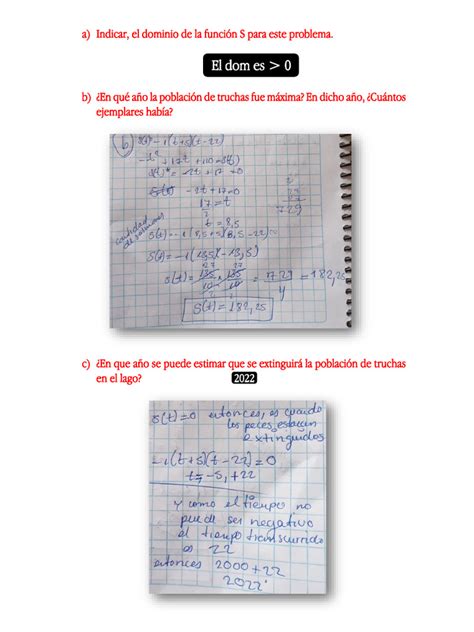 a) Indicar, el dominio de la función S para este problema.
El dom es > 0
b) ¿En qué año la población de truchas fue máxima? En dicho año, ¿Cuántos
ejemplares había?
b) S(t)=-1(t+5)(t-22)
-t² + 17t + 110 = S(t)
S(t)' = -2t + 17 = 0
-2t+17=0
17 = t
2
t = 8,5
cantidad
de salmones
S(t)=-1(8,5+5)(8,5-22)=
S(t)=-1(13,5)(-13,5)
27 27
S(t) = 135 . 135 = 729 = 182,25
10 10 4
S(t) = 182,25
27
27
729
c) ¿En que año se puede estimar que se extinguirá la población de truchas
en el lago? 2022
S(t)=0 entonces, es cuando
los peces estarían
extinguidos
-1(t+5)(t-22)=0
t= -5, +22
Y como el tiempo no
puede ser negativo
el tiempo transcurrido
es 22
entonces 2000+22
2022